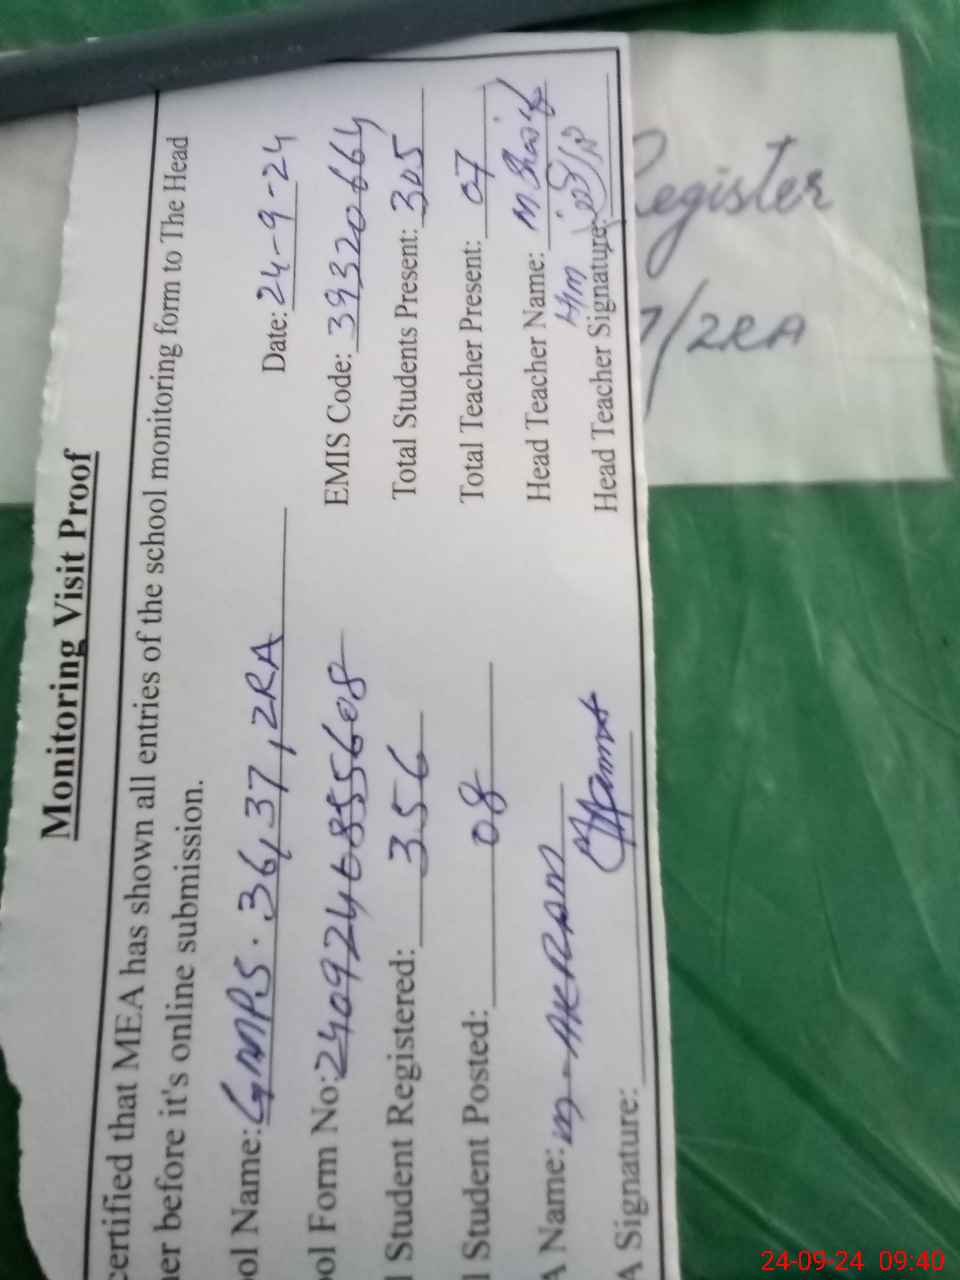 Monitoring Visit Proof
certified that MEA has shown all entries of the school monitoring form to The Head
er before it's online submission.
Date: 24-9-24
ol Name: GMPS. 36,37,2RA
EMIS Code: 39320664
ol Form No: 2409246855608
Total Students Present: 305
l Student Registered: 356
Total Teacher Present: 07
l Student Posted: 08
Head Teacher Name: M
A Name: M-AKRAM
HM
Head Teacher Signature:
A Signature:
Register
7/2RA
24-09-24 09:40